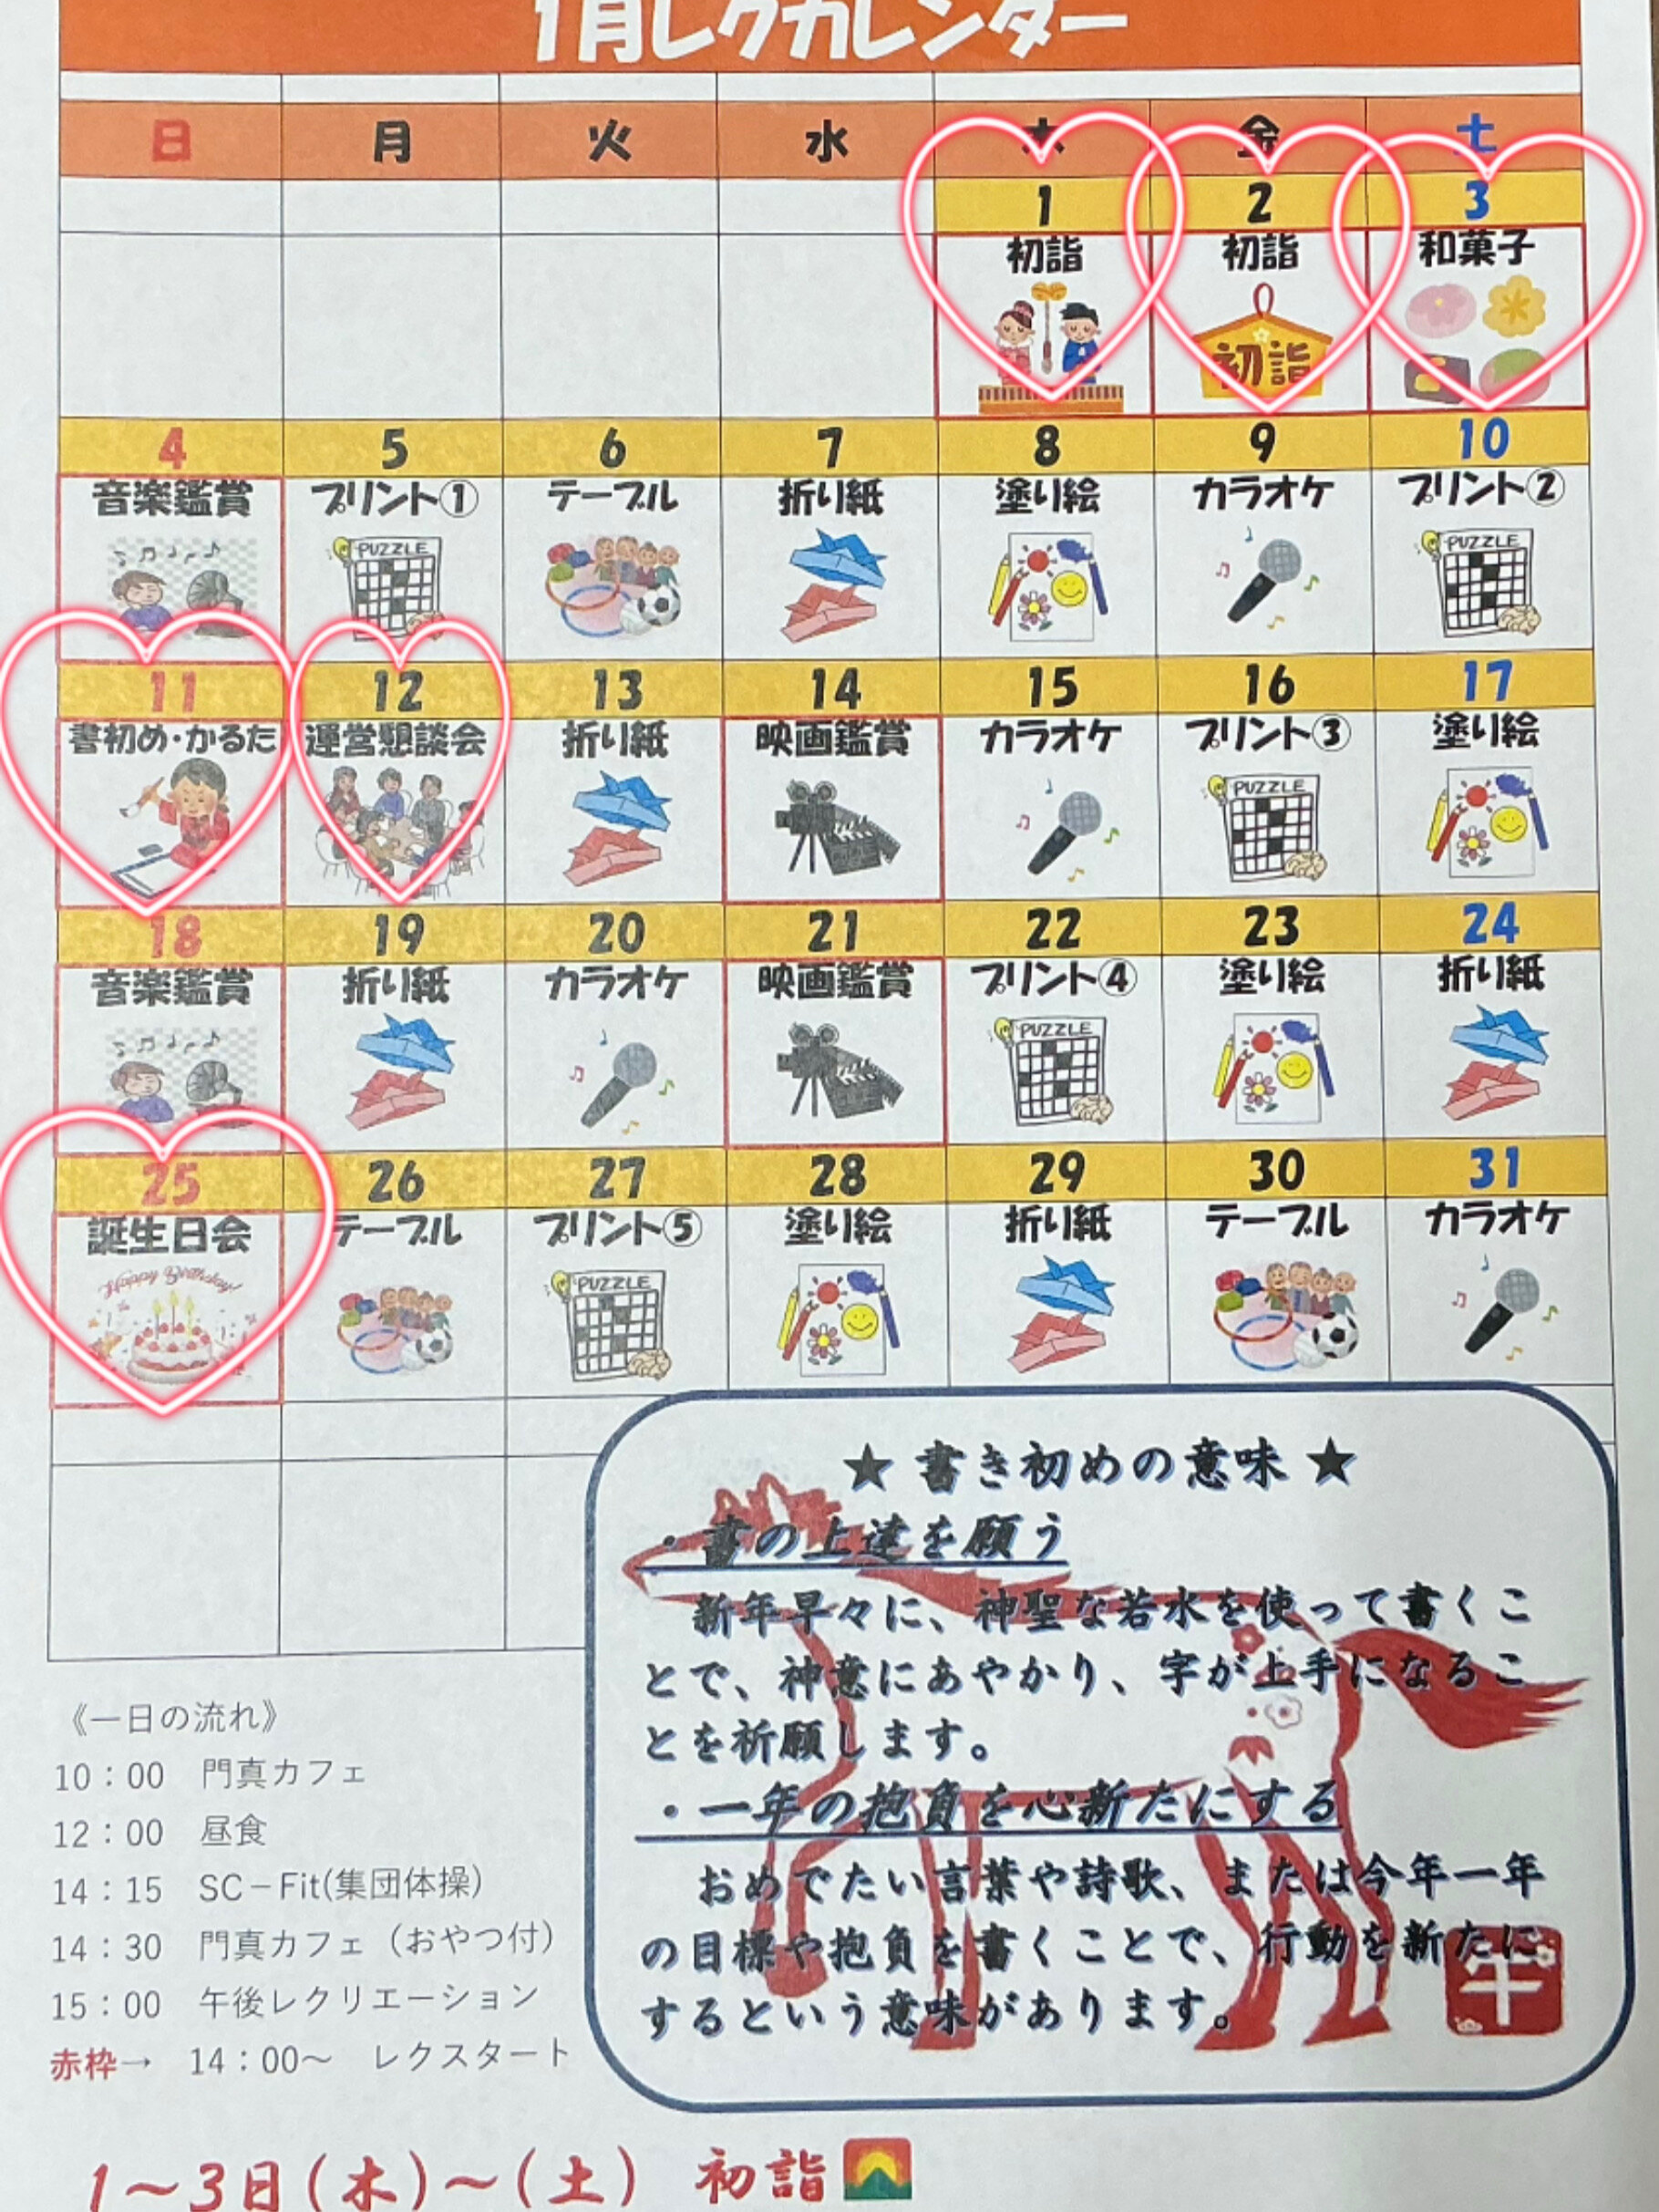 1月レクカレンダー
日 月 火 水 木 金 土
1 2 3
初詣 初詣 和菓子
初詣
4 5 6 7 8 9 10
音楽鑑賞 プリント① テーブル 折り紙 塗り絵 カラオケ プリント②
PUZZLE PUZZLE
11 12 13 14 15 16 17
書初め・かるた 運営懇談会 折り紙 映画鑑賞 カラオケ プリント③ 塗り絵
PUZZLE
18 19 20 21 22 23 24
音楽鑑賞 折り紙 カラオケ 映画鑑賞 プリント④ 塗り絵 折り紙
PUZZLE
25 26 27 28 29 30 31
誕生日会 テーブル プリント⑤ 塗り絵 折り紙 テーブル カラオケ
Happy Birthday! PUZZLE
★ 書き初めの意味 ★
・書の上達を願う
新年早々に、神聖な若水を使って書くこ
とで、神意にあやかり、字が上手になるこ
とを祈願します。
・一年の抱負を心新たにする
おめでたい言葉や詩歌、または今年一年
の目標や抱負を書くことで、行動を新たに
するという意味があります。
午
《一日の流れ》
10：00 門真カフェ
12：00 昼食
14：15 SC－Fit(集団体操)
14：30 門真カフェ（おやつ付）
15：00 午後レクリエーション
赤枠→ 14：00～ レクスタート
1～3日(木)～(土) 初詣